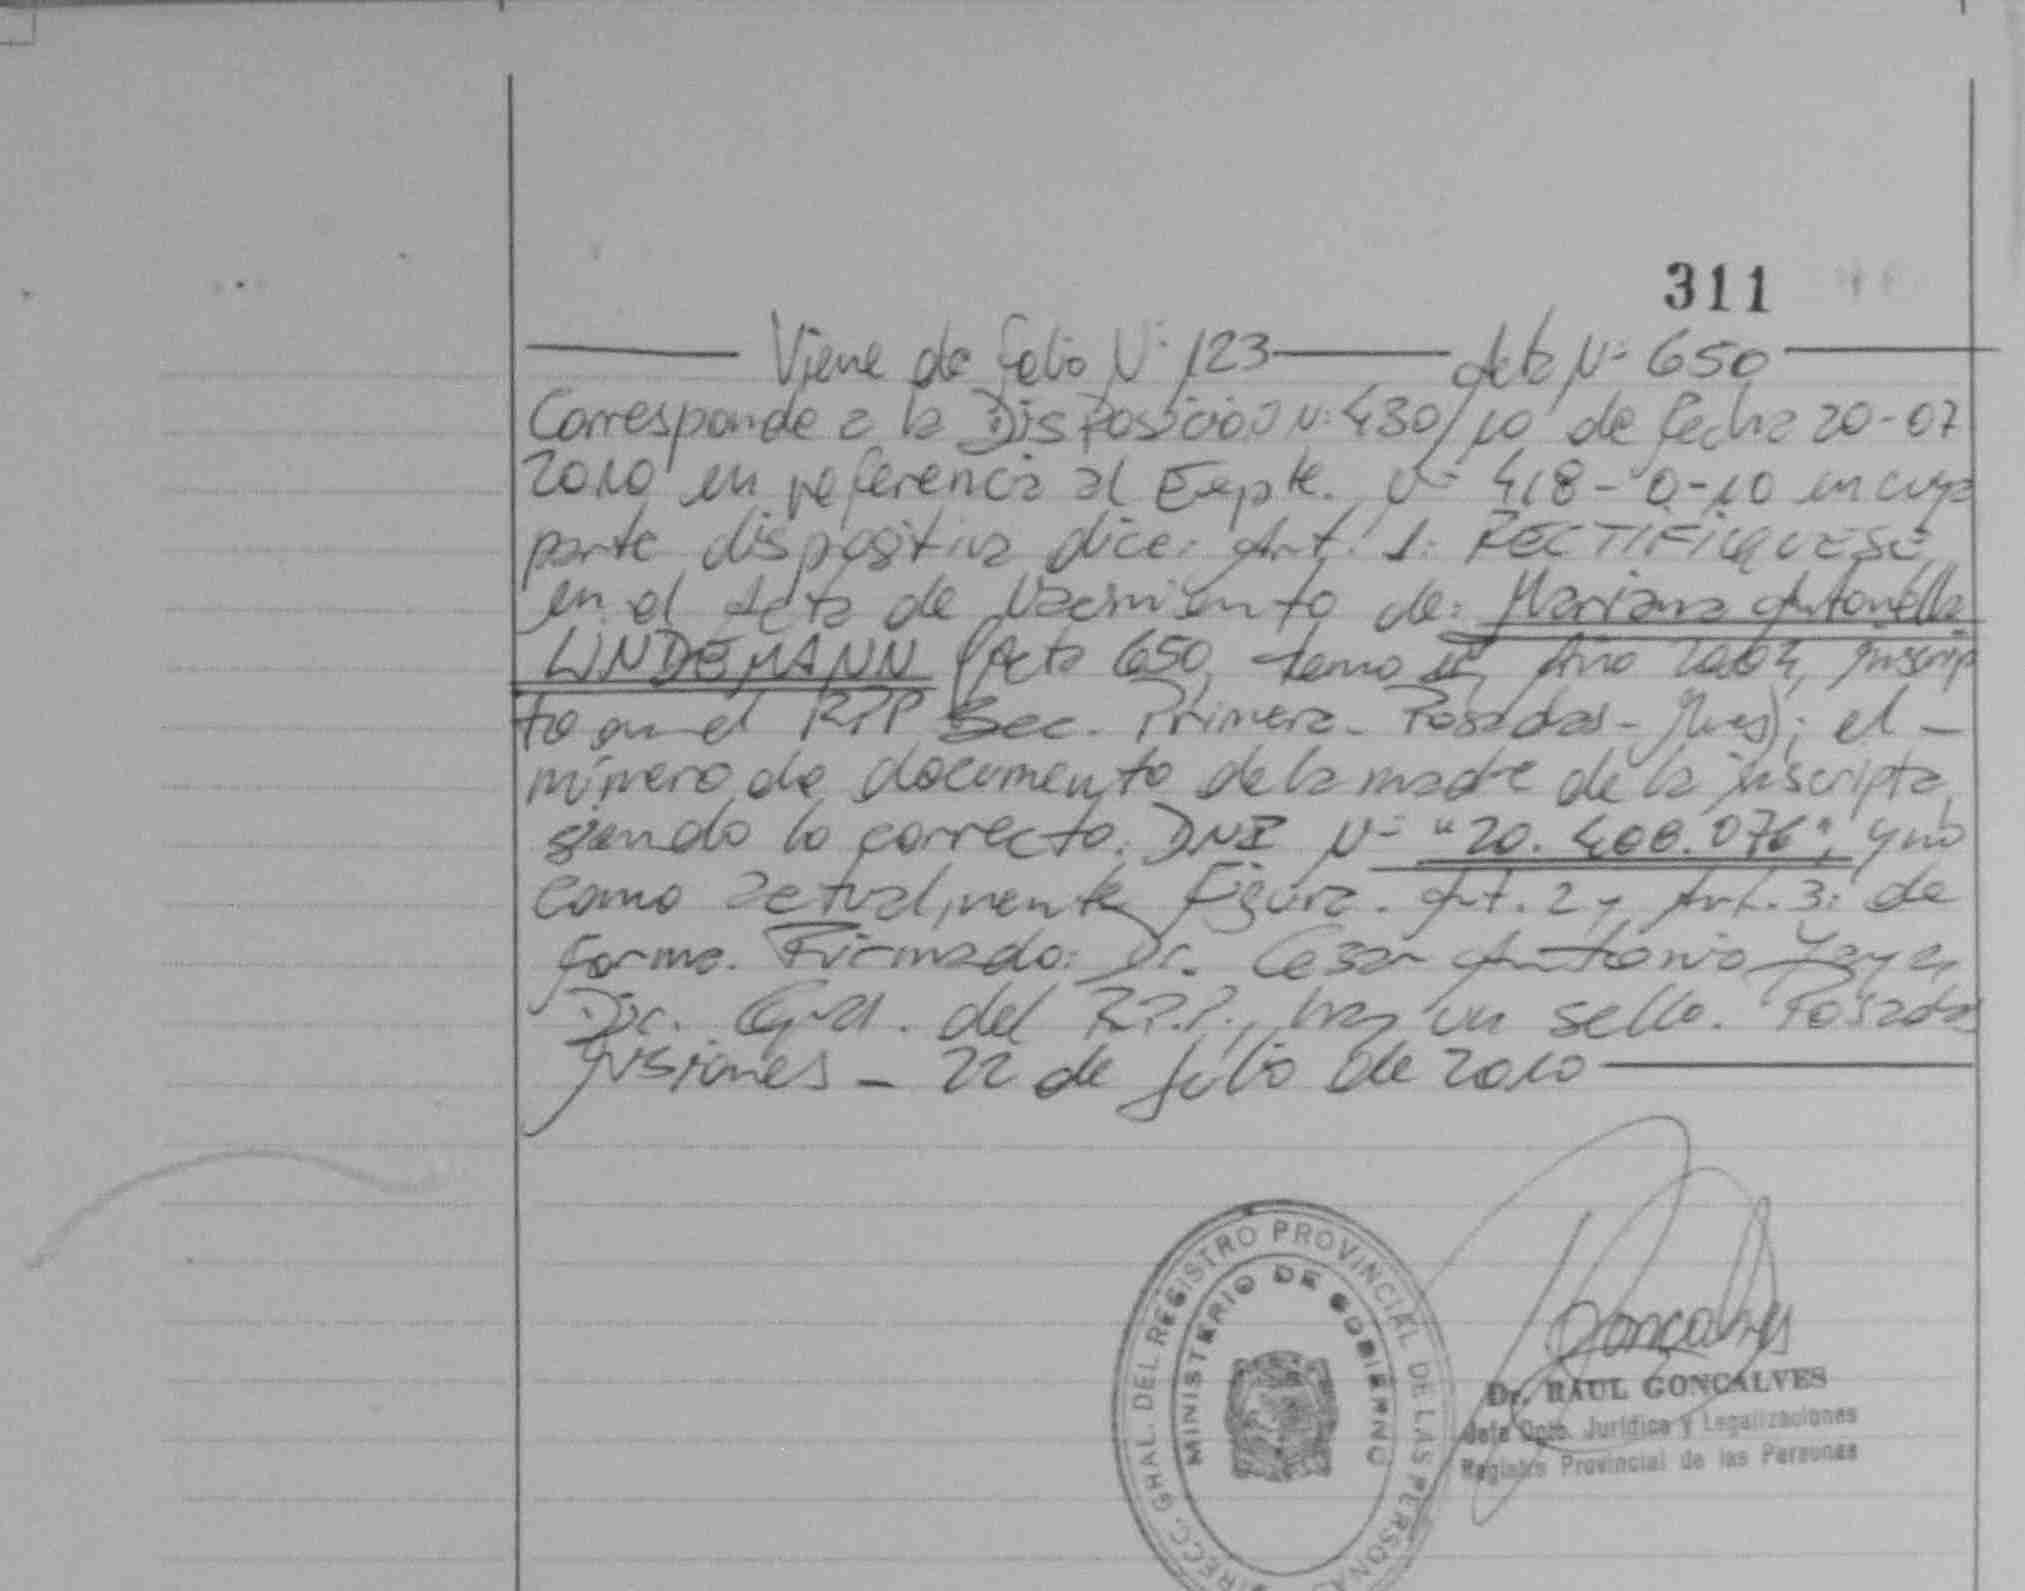 311
Viene de folio Nº 123 Acta Nº 650
Corresponde a la Disposición Nº 430/10 de fecha 20-07
2010 en referencia al Expte. Nº 418-0-10 en cuya
parte dispositiva dice: Art. 1: RECTIFIQUESE
en el Acta de Nacimiento de: Mariana Antonella
LINDEMANN (Acta 650, tomo Año 2004, inscrip
to en el RPP Sec. Primera - Posadas - Mnes); el -
número de documento de la madre de la inscripta,
siendo lo correcto: DNI Nº "20.408.076", y no
como actualmente figura. Art. 2 y Art. 3: de
forma. Firmado: Dr. Cesar Antonio
Dir. Gral. del R.P.P., hay un sello. Posadas
Misiones - 22 de Julio de 2010
DIRECC. GRAL. DEL REGISTRO PROVINCIAL DE LAS PERSONAS
MINISTERIO DE GOBIERNO
Goncalves
Dr. RAUL GONCALVES
Jefe Dpto. Jurídico y Legalizaciones
Registro Provincial de las Personas